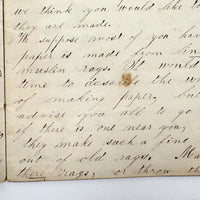 we think you would like to
they are made.
I suppose most of you have
paper is made from lin
muslin rags. It would
time to describe the w
of making paper, but
advise you all to go
if there is one near you,
they make such a fine
out of old rags. Ma
their rags, or throw th